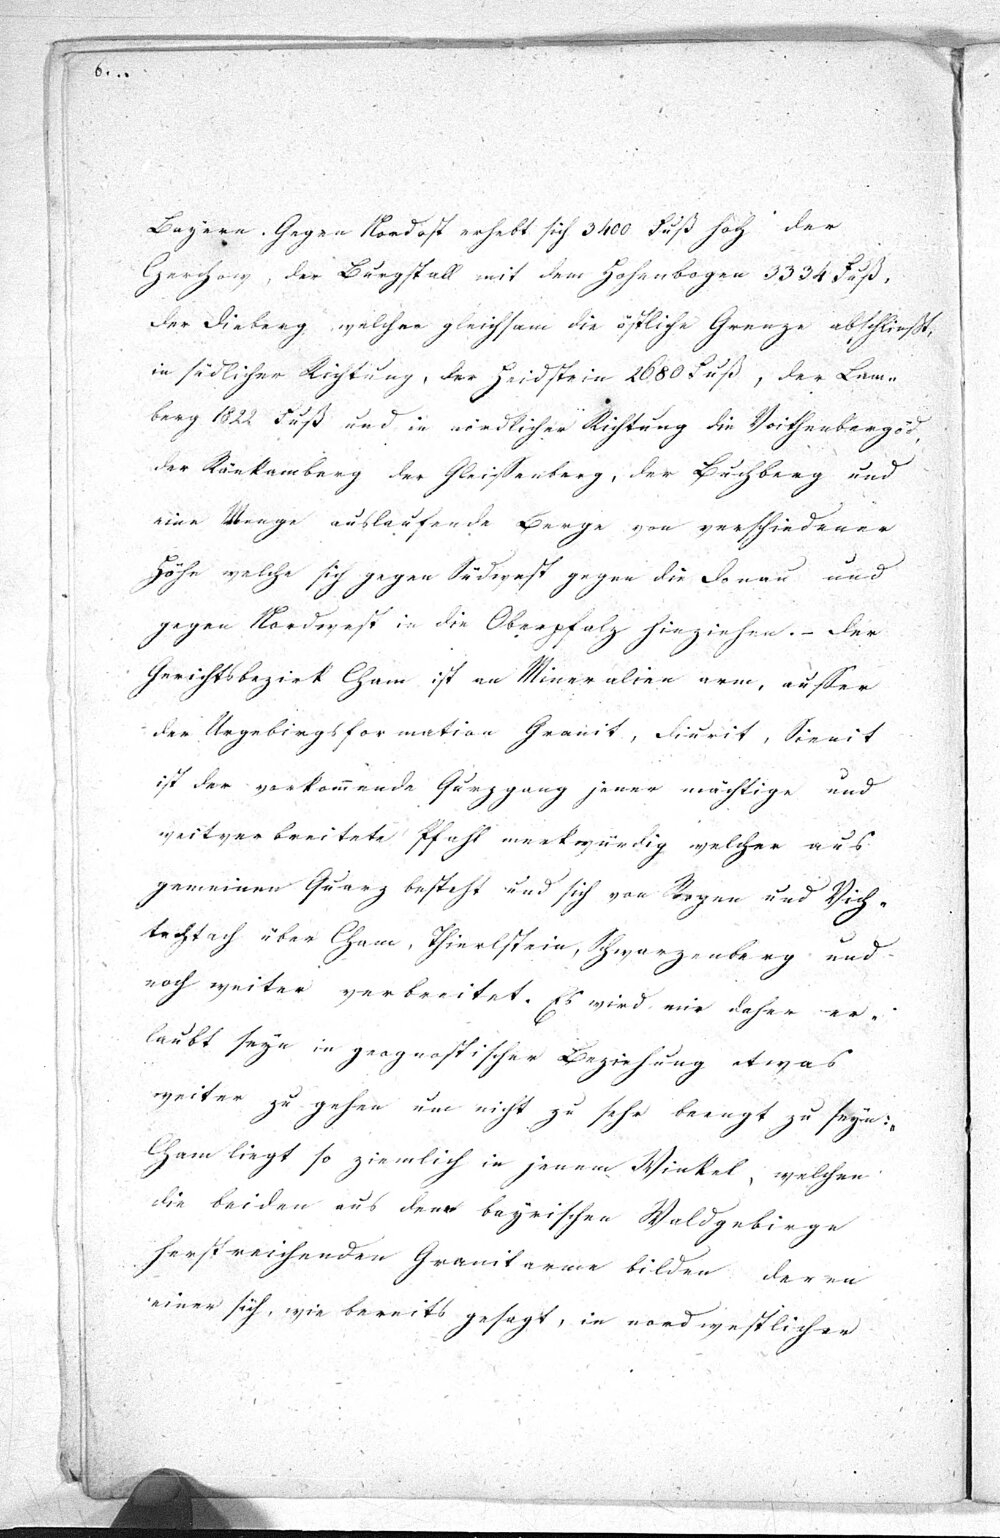 6...
Bayern. Gegen Nordost erhebt sich 3400 Fuß hoh der
Czerchow, der Burgstall mit dem Hohenbogen 3334 Fuß,
der Dieberg welcher gleichsam die östliche Grenze abschließt,
in südlicher Richtung, der Haidstein 2680 Fuß, der Lam=
berg 1822 Fuß und in nördlicher Richtung die Voithenbergöd,
der Ränkamberg der Gleissenberg, der Buchberg und
eine Menge auslaufende Berge von verschiedener
Höhe welche sich gegen Südwest gegen die Donau und
gegen Nordwest in die Oberpfalz hinziehen. – Der
Gerichtsbezirk Cham ist an Mineralien arm, ausser
der Urgebirgsformation Granit, Diurit, Sienit
ist der vorkom̅ende Qurzgang jener mächtige und
weitverbreitete Pfahl merkwürdig welcher aus
gemeinen Quarz besteht und sich von Regen und Vich=
techtach über Cham, Thierlstein, Schwarzenberg und
noch weiter verbreitet. Es wird mir daher er=
laubt seyn in geognostischer Beziehung etwas
weiter zu gehen um nicht zu sehr beengt zu seyn:
Cham liegt so ziemlich in jenem Winkel, welchen
die beiden aus dem bayrischen Waldgebirge
herstreichenden Granitarme bilden deren
einer sich, wie bereits gesagt, in nordwestlicher